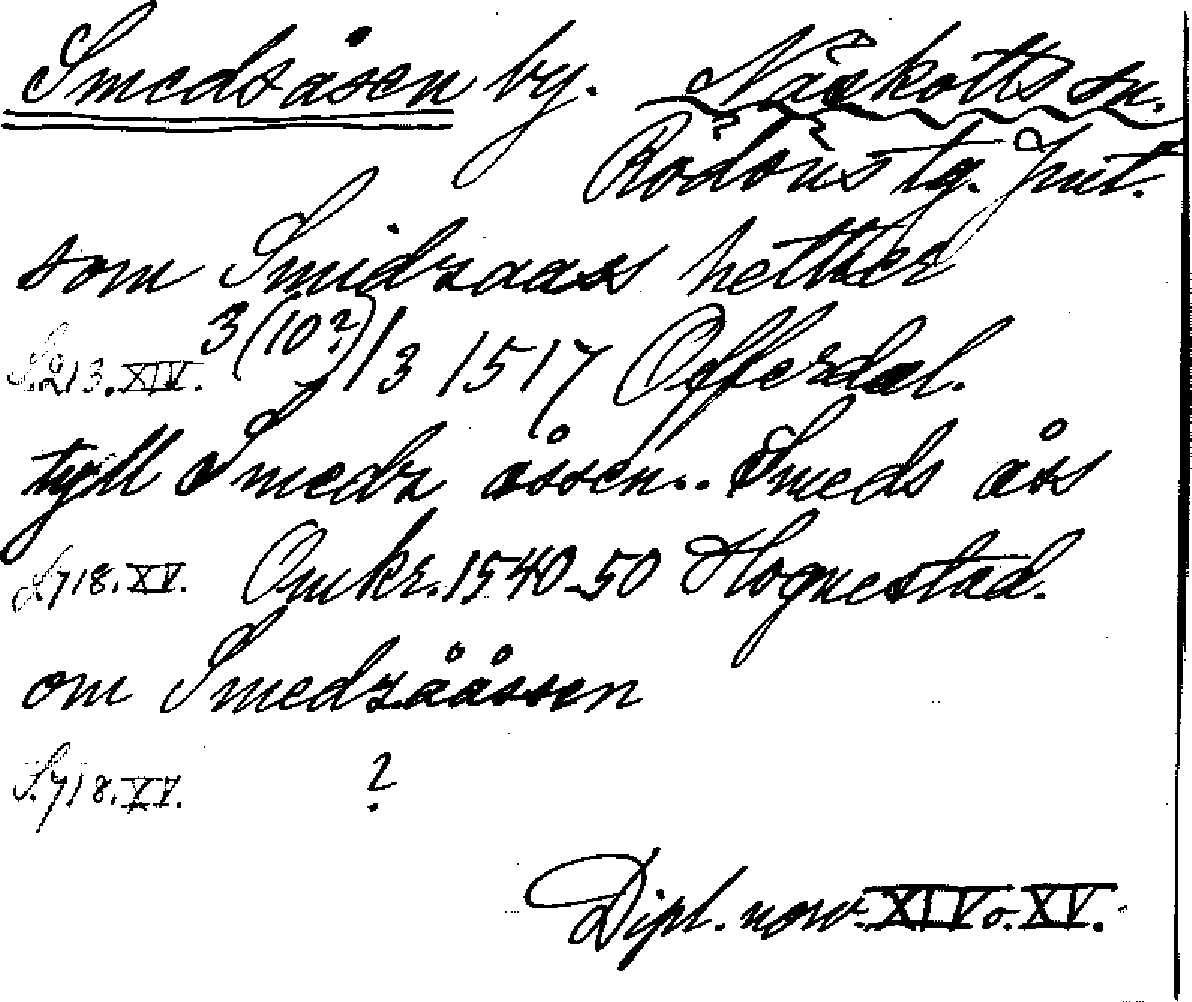 Smedsåsen by. Näskotts sn.
Rödöns tg. Jmt.
som Smidzaass hetther
S. 213. XIV. 3 (10?)/3 1517 Offerdal.
tyll Smedz åssen.. Smeds ås
S. 718. XV. Omkr. 1540-50 Hognestad.
om Smedzååssen
S. 718. XV. ?
Dipl. norv. XIV o. XV.